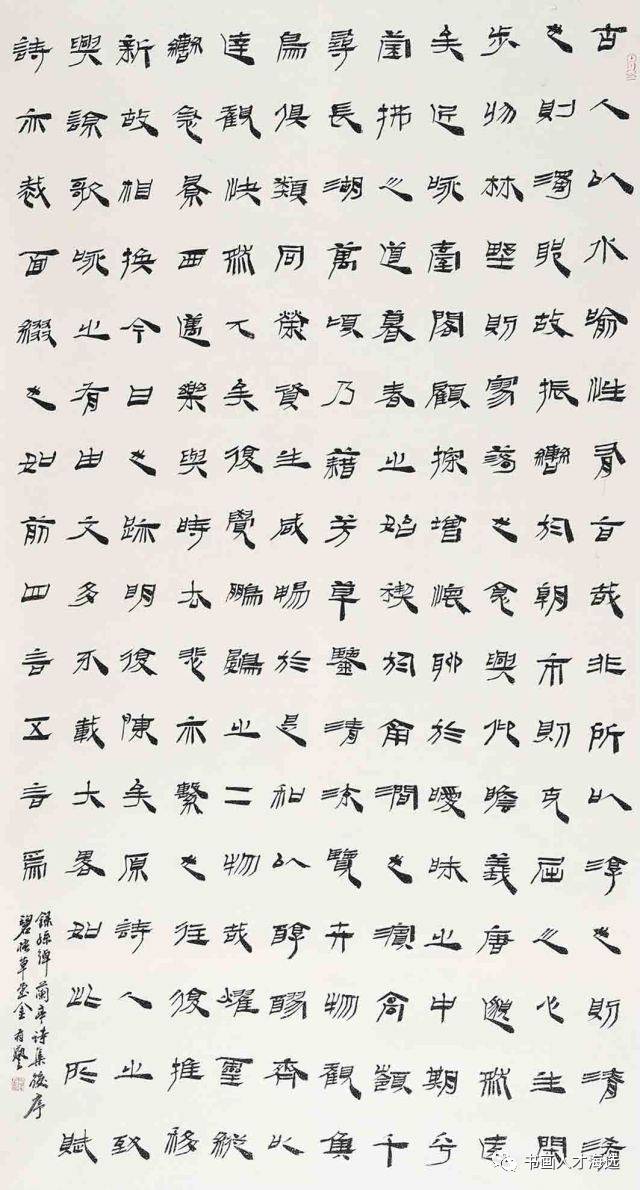 古人以水喻性有旨哉非所以渟之則清淆
之則濁耶故振轡於朝市則充屈之心生閑
步於林野則寥落之意興仰瞻羲唐邈然遠
矣近咏臺閣顧探增懷聊於曖昧之中期乎
瑩拂之道暮春之始禊於南澗之濱高嶺千
尋長湖萬頃乃藉芳草鑒清流覽卉物觀魚
鳥俱類同榮資生咸暢於是和以醇醪齊以
達觀快然兀矣復覺鵬鷃之二物哉耀靈縱
轡急景西邁樂與時去悲亦繫之往復推移
新故相換今日之跡明復陳矣原詩人之致
興諒歌咏之有由文多不載大畧如此所賦
詩亦裁而綴之如前四言五言焉
錄孫綽蘭亭诗集後序
草堂金
书画人才海选